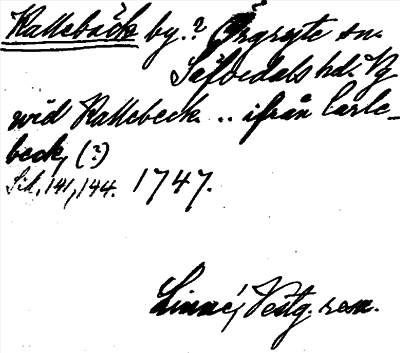 Kallebäck by.? Örgryte sn.
Säfvedals hd. Vg
wid Kallebeck .. ifrån Carle-
beck, (?)
Sid. 141, 144. 1747.
Linné, Vestg. resa.